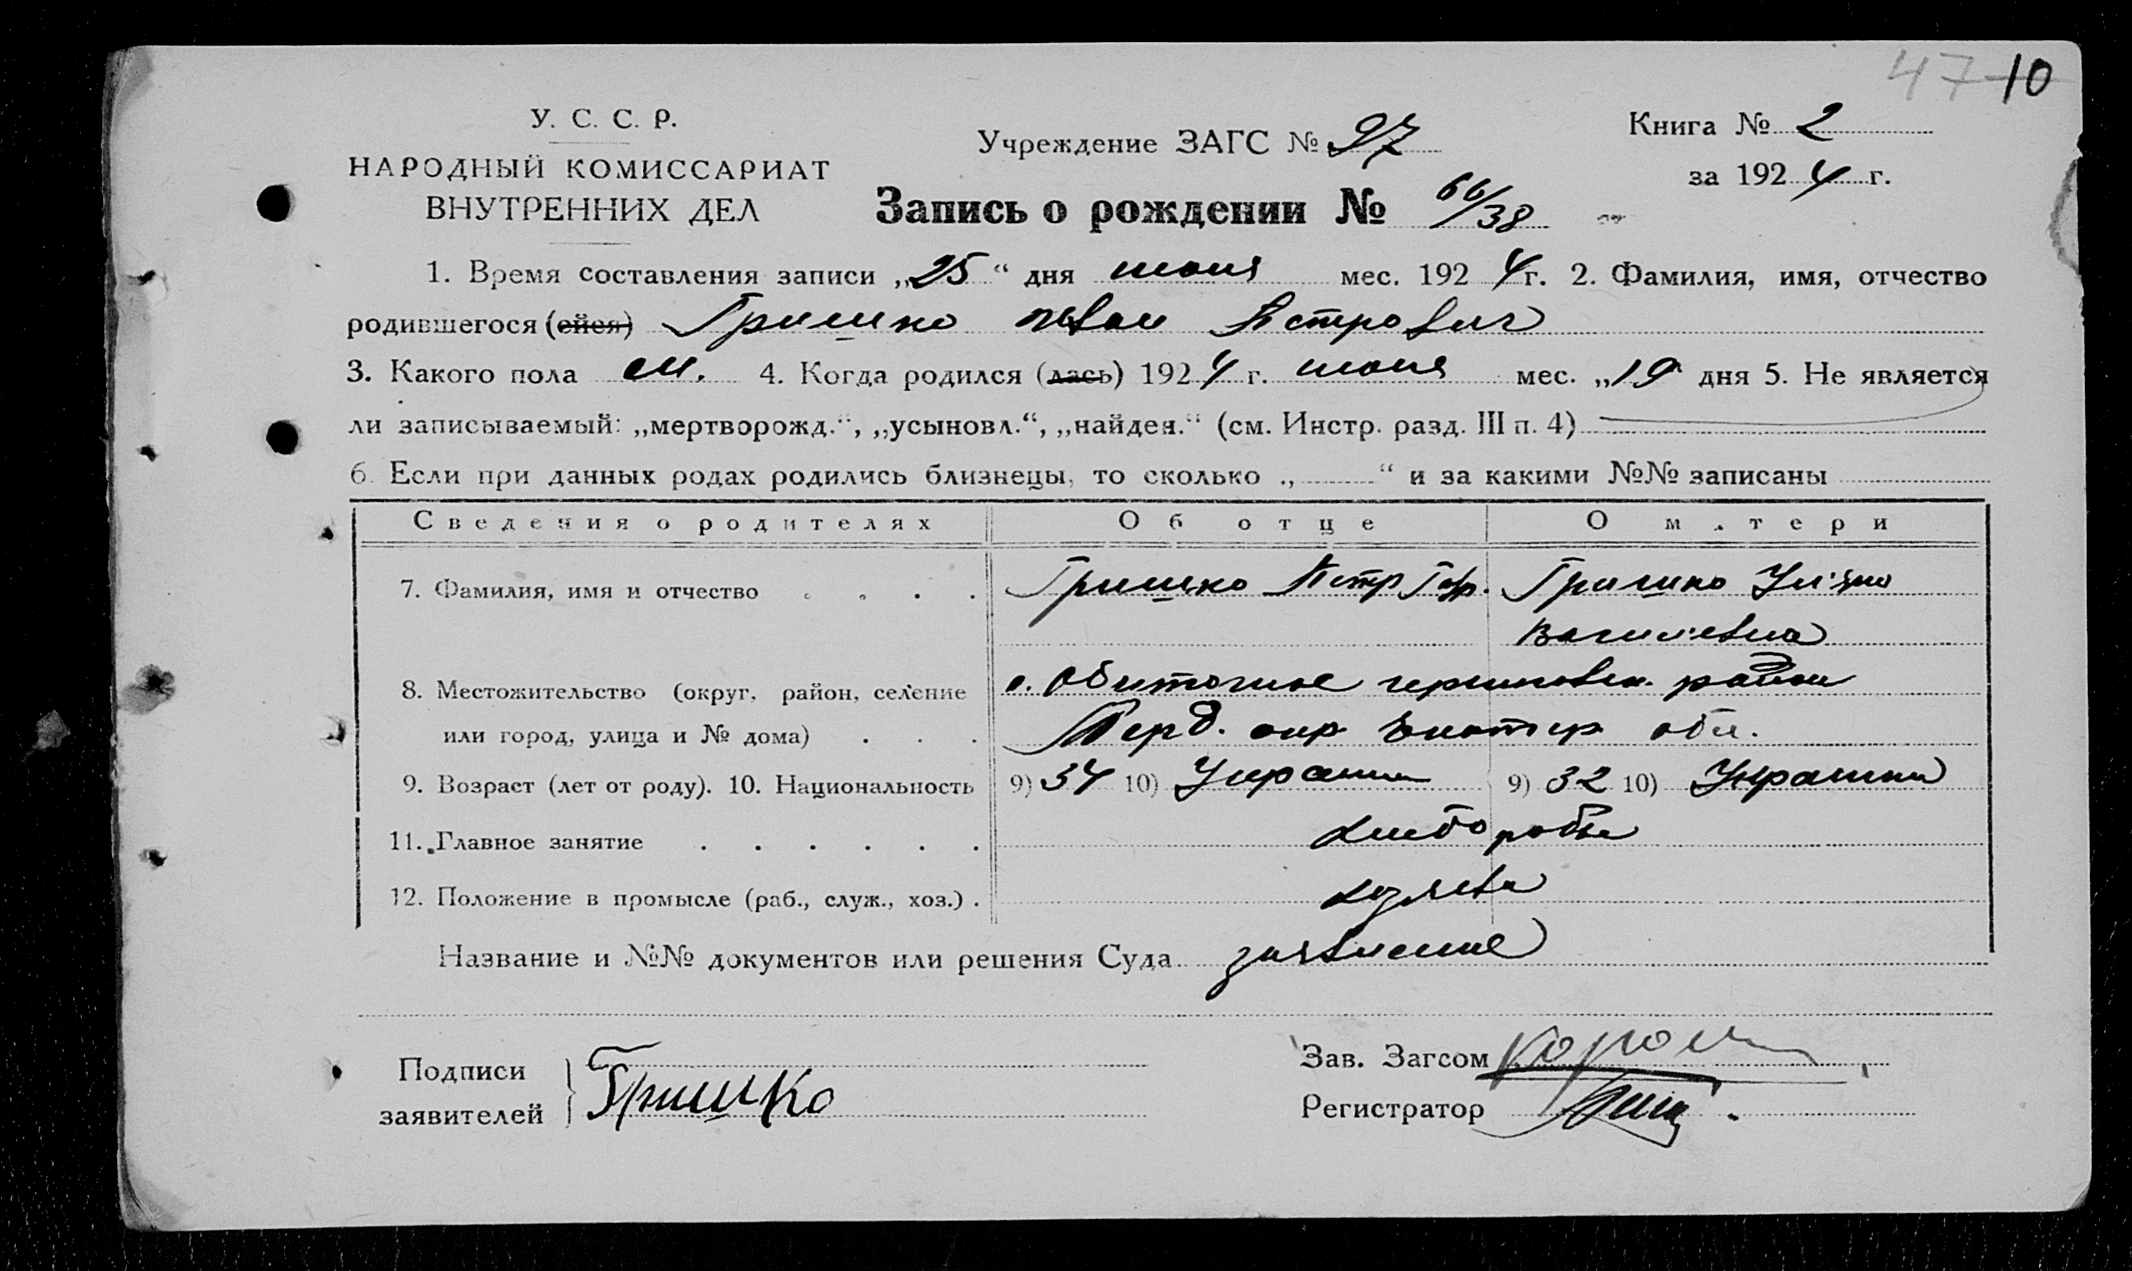 47 10
У. С. С. Р.
НАРОДНЫЙ КОМИССАРИАТ
ВНУТРЕННИХ ДЕЛ
Учреждение ЗАГС № 97
Книга № 2
за 1924 г.
Запись о рождении № 66/38
1. Время составления записи „25“ дня июня мес. 1924 г. 2. Фамилия, имя, отчество
родившегося (ейся) Гришко Иван Петрович
3. Какого пола м. 4. Когда родился (лась) 1924 г. июня мес. „19“ дня 5. Не является
ли записываемый: „мертворожд.“, „усыновл.“, „найден.“ (см. Инстр. разд. III п. 4)
6. Если при данных родах родились близнецы, то сколько „ “ и за какими №№ записаны
Сведения о родителях Об отце О матери
7. Фамилия, имя и отчество . . . . Гришко Петр Гришко Ульяна
Васильевна
8. Местожительство (округ, район, селение с. Обиточное район
или город, улица и № дома) . . . окр Екатер обл.
9. Возраст (лет от роду). 10. Национальность 9) 34 10) Украин 9) 32 10) Украинка
11. Главное занятие . . . . . . хлебороб
12. Положение в промысле (раб., служ., хоз.) . хозяева
Название и №№ документов или решения Суда заявление
Подписи
заявителей } Гришко
Зав. Загсом
Регистратор